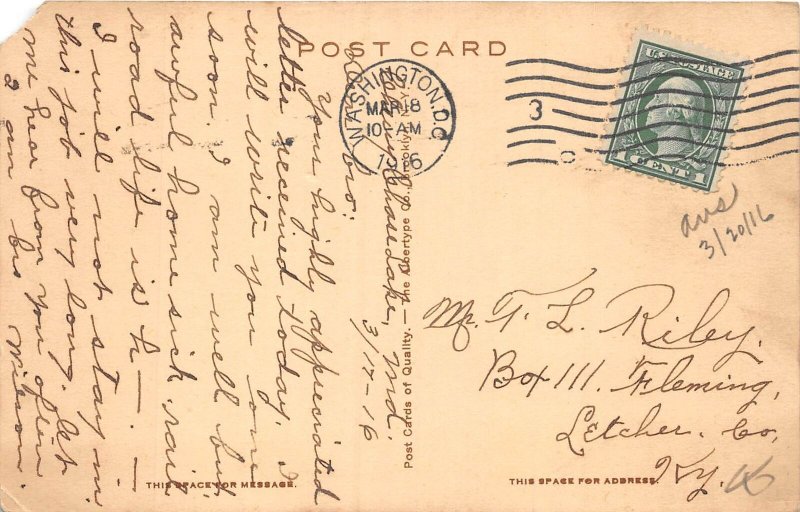 POST CARD
WASHINGTON, D.C.
MAR 18
10 AM
1916
3
U.S. POSTAGE
1 CENT 1
ans
3/20/16
Chase Lake, Md.
3/17-16
Dear Bro:
Your highly appreciated
letter received today. I
will write you one
soon. I am well but
awful home sick rail
road life is h—. —
I will not stay in
this job very long. Let
me hear from you often
I am bro
Wilson.
Mr. T. L. Riley.
Box 111. Fleming,
Letcher. Co,
Ky.
Post Cards of Quality. — The Albertype Co., Brooklyn, N.Y.
THIS SPACE FOR MESSAGE.
THIS SPACE FOR ADDRESS.